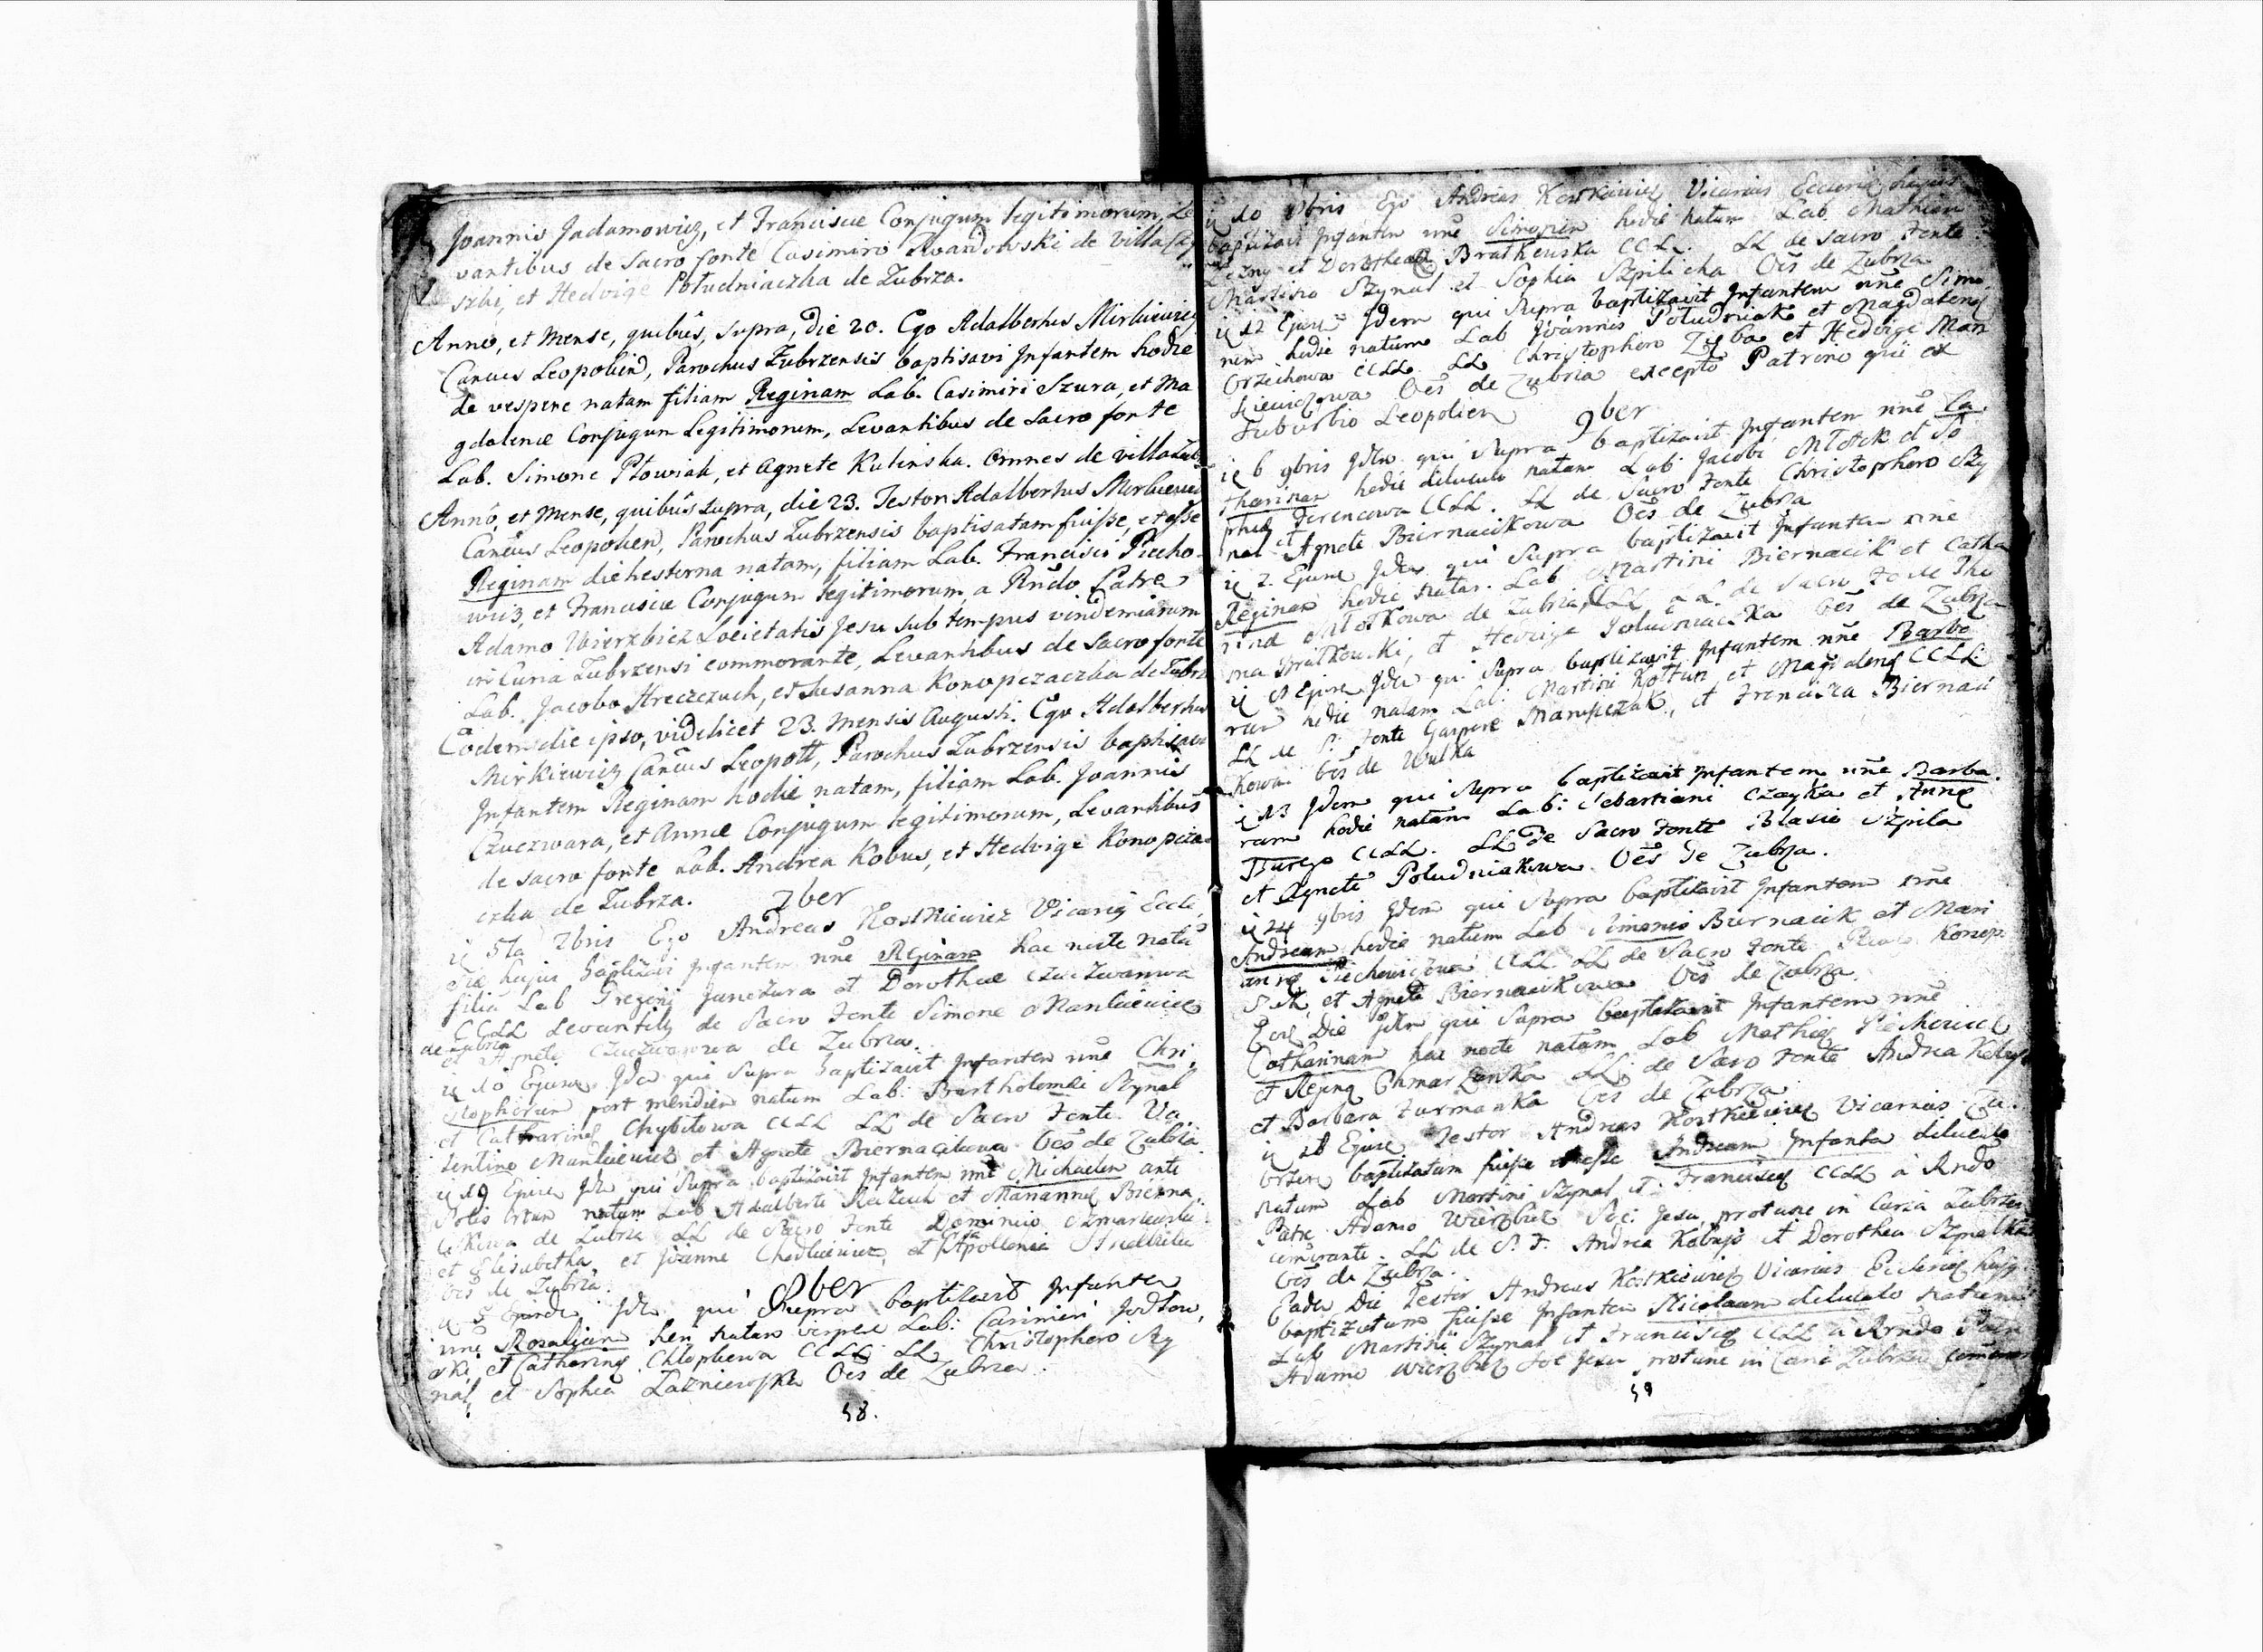 Joannis Jadamowicz, et Franciscæ Conjugum legitimorum, Le
vantibus de Sacro fonte Casimiro Lewandowski de villa
et Hedvige Południaczka de Zubrza.
Anno, et Mense, quibus, supra, die 20. Ego Adalbertus Mirkiewicz
Canĉus Leopolien̄, Parochus Zubrzensis baptisavi Infantem hodie
de vespere natam filiam Reginam Lab. Casimiri Szura, et Ma
gdalenæ Conjugum Legitimorum, Levantibus de Sacro fonte
Lab. Simone Płowiak, et Agnete Kulinska. Omnes de villa Zub
Anno, et Mense, quibus supra, die 23. Testor Adalbertus Mirkiewicz
Canĉus Leopolien̄, Parochus Zubrzensis baptisatam fuisse, et esse
Reginam die hesterna natam, filiam Lab. Francisci Piecho
wicz, et Franciscæ Conjugum legitimorum, a Rn̄do Patre
Adamo Wierzbicz Societatis Jesu sub tempus vindemiarum
in Curia Zubrzensi commorante, Levantibus de Sacro fonte
Lab. Jacobo Hreczuch, et Susanna Konopczaczka de Zubrz
Eodem die ipso, videlicet 23. Mensis Augusti. Ego Adalbertus
Mirkiewicz Canĉus Leopoll, Parochus Zubrzensis baptisavi
Infantem Reginam hodie natam, filiam Lab. Joannis
Czuczwara, et Annæ Conjugum legitimorum, Levantibus
de sacro fonte Lab. Andrea Kobus, et Hedvige Konopcza
czka de Zubrza.
7ber
5ta 7bris Ego Andreas Kostkiewicz Vicariq Eccle
siæ hujus baptizavi Infantem nn̄e Reginam hac nocte natā
filiā Lab Gregorij et Dorotheæ Czuczwarowa
CCLL Levantibq de Sacro Fonte Simone Mankiewicz
de Zubrza
et Agnete Czuczwarowa de Zubrza.
10 Ejusd Idem qui Supra baptizavit Infantem nn̄e Chri
stopherum post meridiem natum Lab: Bartholomæi Szynal
et Catharinæ Chybitowa CCLL LL de Sacro Fonte Va
lentino Mankiewicz et Agnete Biernacikowa Oēs de Zubrza
19 Ejusd Idem qui Supra baptizavit Infantem nn̄e Michaelem ante
Solis ortum natum Lab Adalberti et Mariannæ Bierna
cikowa de Zubrza LL de Sacro Fonte Dominico
et Elisabetha, et Joanne Chodkiewicz, et Apollonia
Oēs de Zubrza.
8ber
5 Idem qui Supra baptizavit Infantem
nn̄e Rosaliam heri natam vespere Lab: Casimiri Jodłow
ski et Catharinæ Chlopkowa CCLL LL Christophero Szy
nal et Sophia Lazniewska Oēs de Zubrza
58.
10 8bris Ego Andreas Kostkiewicz Vicarius Ecclesiæ hujus
baptizavi Infantem nn̄e Simonem hodie natum Lab. Mathiæ
et Dorotheæ Bratkowska CCLL. LL de Sacro Fonte
Martino Szynal et Sophia Szpilicha Oēs de Zubrza
12 Ejusd Idem qui Supra baptizavit Infantem nn̄e Simo
nem hodie natum Lab Joannis Południak et Magdalenæ
Orzechowa CCLL. LL Christophoro Zyba et Hedvige Man
kiewiczowa Oēs de Zubrza excepto Patrino qui ex
Suburbio Leopolien
9ber
6 9bris Idem qui Supra baptizavit Infantem nn̄e Ca
tharinam hodie diluculo natam Lab Jacobi Młotek et So
phiæ Ferencowa CCLL. LL de Sacro Fonte Christophero Szy
nal et Agnete Biernacikowa Oēs de Zubrza
7. Ejusd Idem qui Supra baptizavit Infantem nn̄e
Reginam hodie natam. Lab Martini Biernacik et Catha
rina Młotkowa de Zubrza, CCLL LL. de Sacro Fonte Tho
ma Bratkowski, et Hedvige Południaczka Oēs de Zubrza
8 Ejusd Idem qui Supra baptizavit Infantem nn̄e Barba
ram hodie natam Lab: Martini Kołtun et Magdalenæ CCLL
LL de S: Fonte Gaspere Marupczak, et Francisca Biernaci
kowa Oēs de Wulka
13 Idem qui Supra baptizavit Infantem nn̄e Barba
ram hodie natam Lab: Sebastiani Czayka et Annæ
CCLL. LL de Sacro Fonte Blasio Szpila
et Agnete Południakowa Oēs de Zubrza.
24 9bris Idem qui Supra baptizavit Infantem nn̄e
Andream hodie natum Lab Simonis Biernacik et Mari
annæ Piechowiczowa CCLL LL de Sacro Fonte Konop
et Agnete Biernacikowa Oēs de Zubrza.
Eod Die Idem qui Supra baptizavit Infantem nn̄e
Catharinam hac nocte natam Lab Mathiæ Piechowicz
et Reginæ LL de Sacro Fonte Andrea Kobus
et Barbara Furmanka Oēs de Zubrza
28 Ejusd Testor Andreas Kostkiewicz Vicarius Zu
brzen baptizatum fuisse et esse Andream Infantem diluculo
natum Lab Martini Szynal et Franciscæ CCLL à Rndo
Patre Adamo Wierzbicz Soc: Jesu protunc in Curia Zubrzen
comorante. LL de S. F. Andrea Kobus et Dorothea Szynalka
Oēs de Zubrza.
Eadem Die Testor Andreas Kostkiewicz Vicarius Ecclesiæ hujq
baptizatum fuisse Infantem Nicolaum diluculo natum
Lab Martini Szynal et Franciscæ CCLL à Rn̄do Patre
Adamo Wierzbicz Soc Jesu protunc in Curia Zubrzen comoran
59